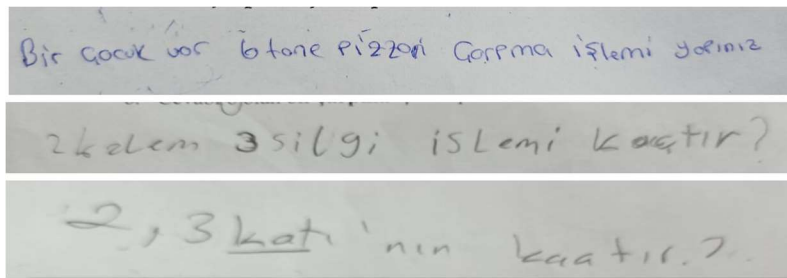 Bir çocuk var 6 tane pizzan Çarpma işlemi yapınız
2 kalem 3 silgi islemi kaçtır?
2, 3 katı'nın kaatır.?